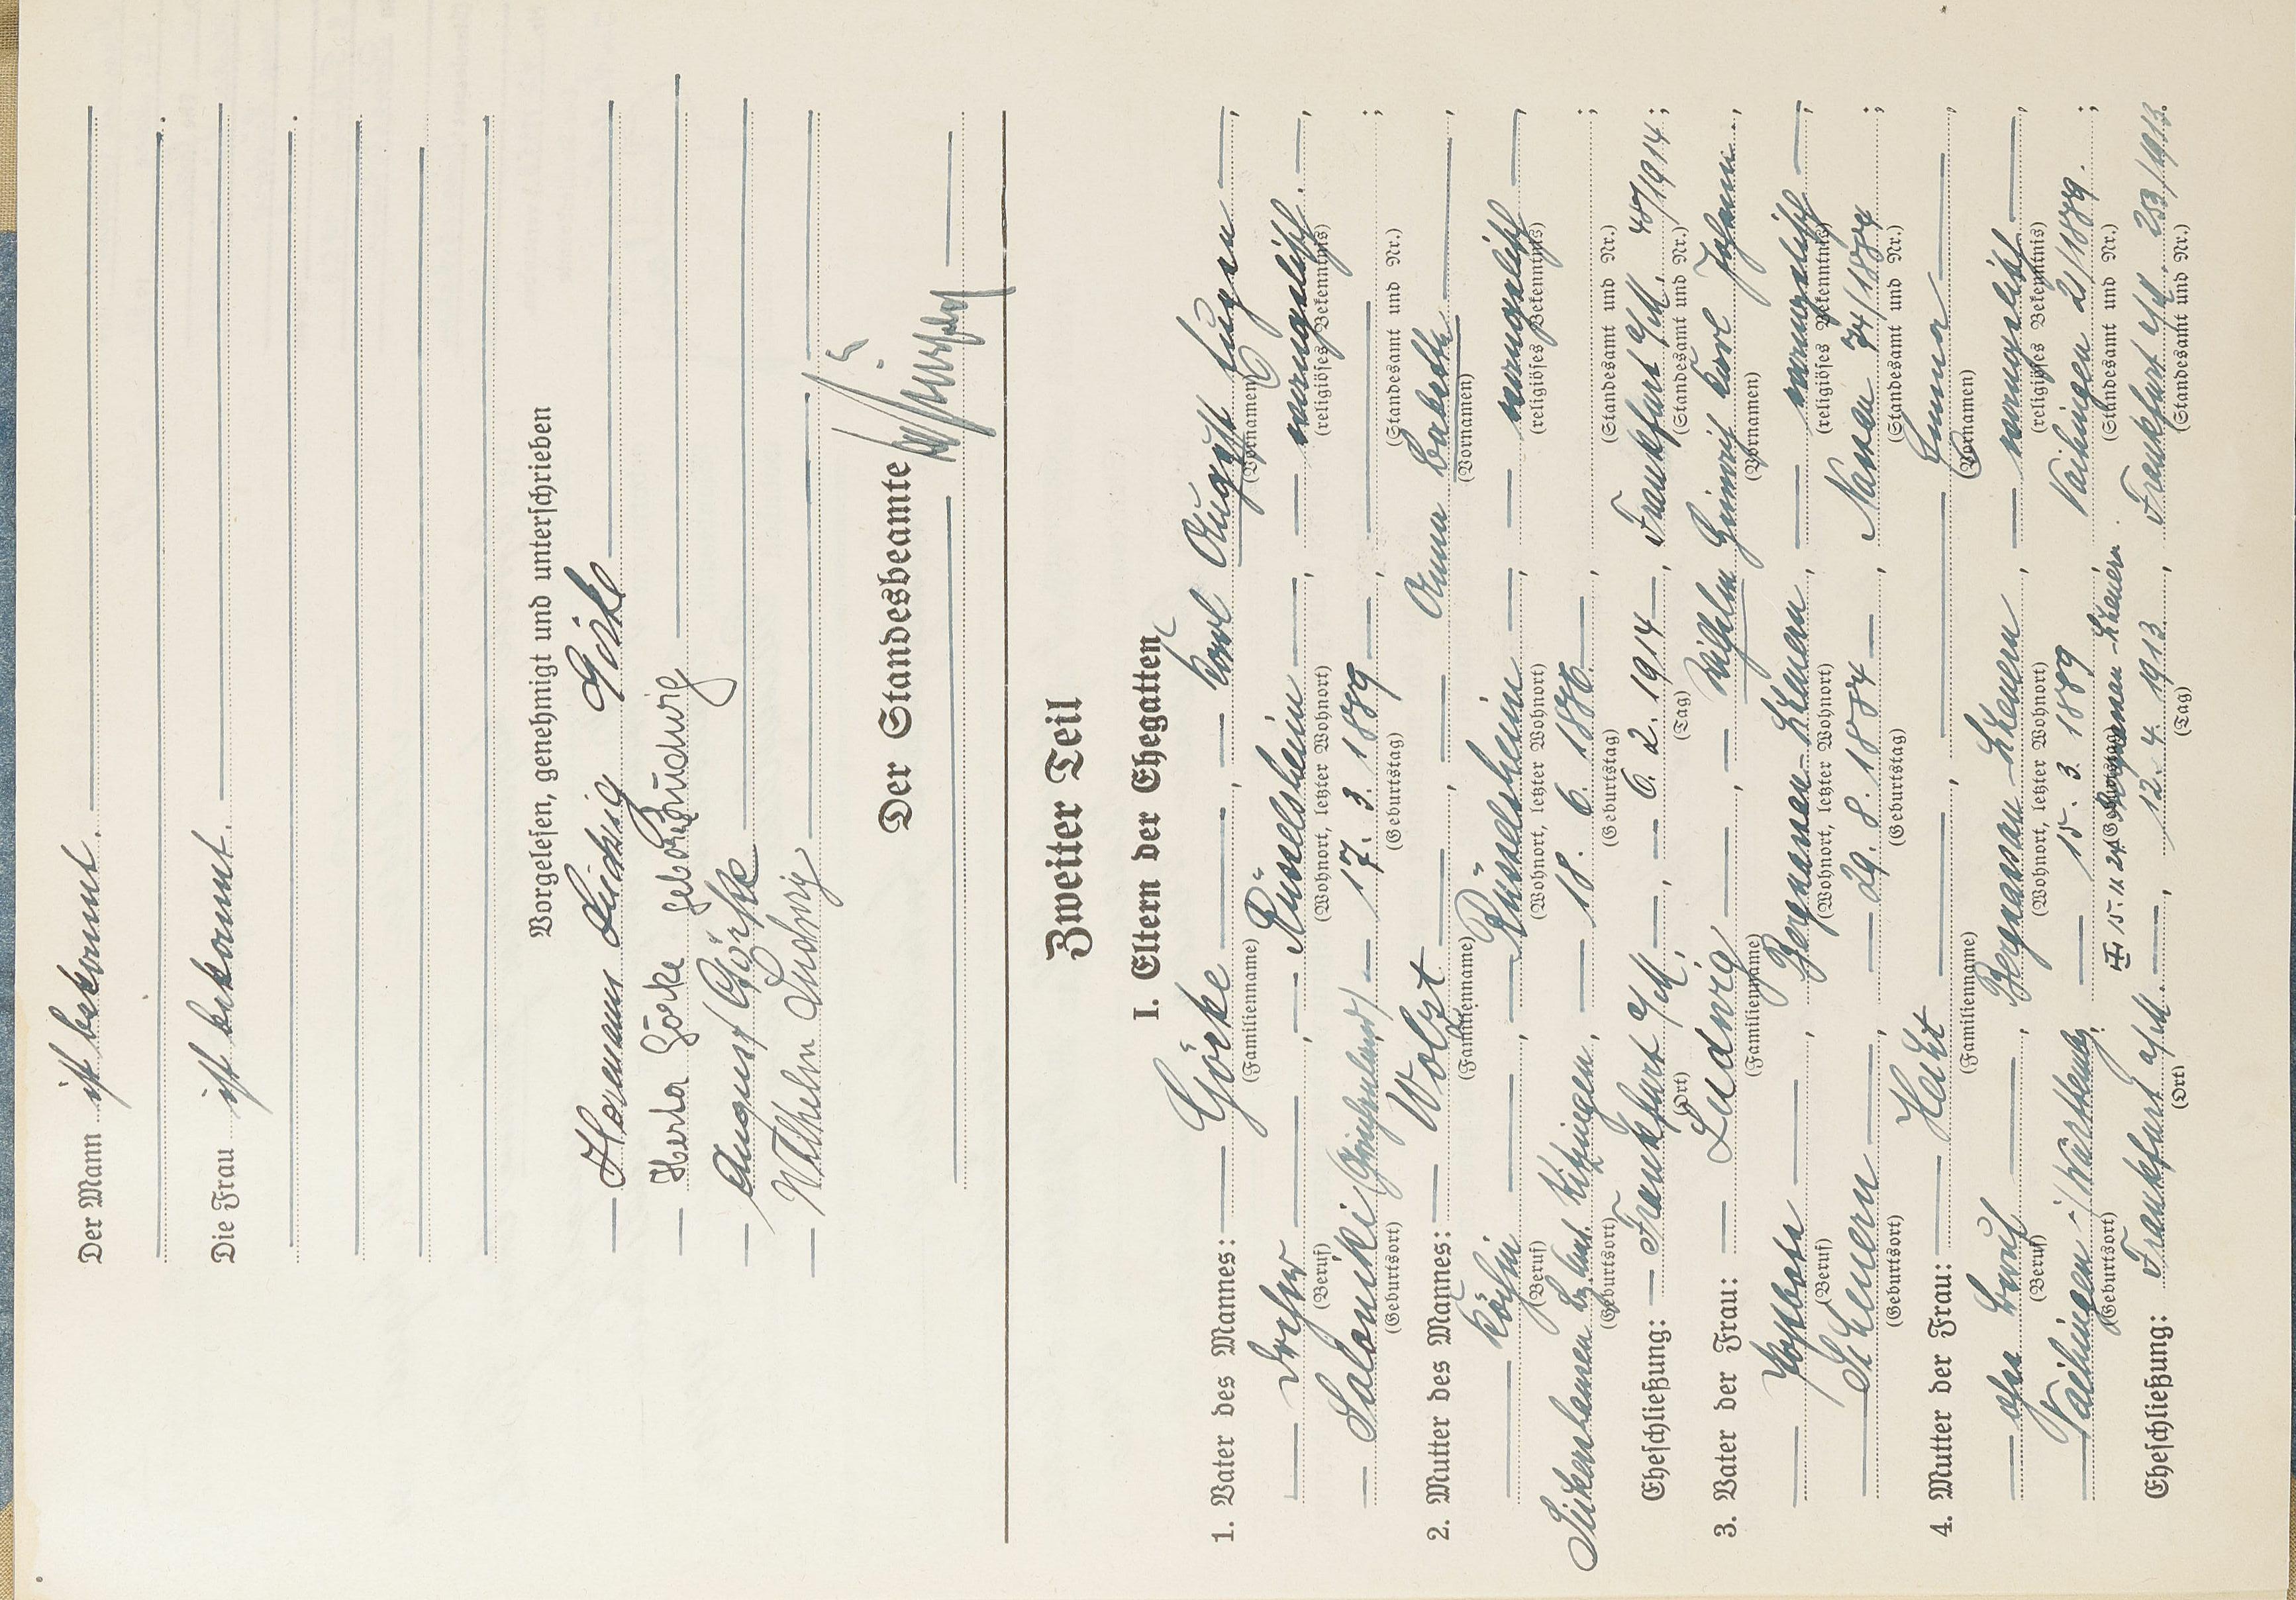 Der Mann ist bekannt.
Die Frau ist bekannt.
Vorgelesen, genehmigt und unterschrieben
Hermann Ludwig Görke
Herta Görke geborne Ludwig
August Görke
Wilhelm Ludwig
Der Standesbeamte
Zweiter Teil
I. Eltern der Ehegatten
1. Vater des Mannes: Görke, Karl August Eugen,
(Familienname) (Vornamen)
Dreher, Rüsselsheim, evangelisch.
(Beruf) (Wohnort, letzter Wohnort) (religiöses Bekenntnis)
Saloniki (Griechenland) 17. 3. 1889, ;
(Geburtsort) (Geburtstag) (Standesamt und Nr.)
2. Mutter des Mannes: Wolzt, Anna Babette,
(Familienname) (Vornamen)
Köchin, Rüsselsheim, evangelisch,
(Beruf) (Wohnort, letzter Wohnort) (religiöses Bekenntnis)
Sickershausen Bz. Amt. Kitzingen, 18. 6. 1886, ;
(Geburtsort) (Geburtstag) (Standesamt und Nr.)
Eheschließung: Frankfurt a/M., 6. 2. 1914, Frankfurt a/M. 48/1914;
(Ort) (Tag) (Standesamt und Nr.)
3. Vater der Frau: Ludwig, Wilhelm Heinrich Karl Johann,
(Familienname) (Vornamen)
Postbote, Bergnassau-Scheuern, evangelisch,
(Beruf) (Wohnort, letzter Wohnort) (religiöses Bekenntnis)
Scheuern, 29. 8. 1884, Nassau 74/1884;
(Geburtsort) (Geburtstag) (Standesamt und Nr.)
4. Mutter der Frau: Hecht, Emma,
(Familienname) (Vornamen)
ohne Beruf, Bergnassau-Scheuern, evangelisch,
(Beruf) (Wohnort, letzter Wohnort) (religiöses Bekenntnis)
Vaihingen 15. 3. 1889 Vaihingen 21/1889.;
(Geburtsort) (Geburtstag) (Standesamt und Nr.)
Bergnassau-Scheuern.
Eheschließung: Frankfurt a/M., 12. 4. 1913, Frankfurt a/M. 253/1913.
(Ort) (Tag) (Standesamt und Nr.)